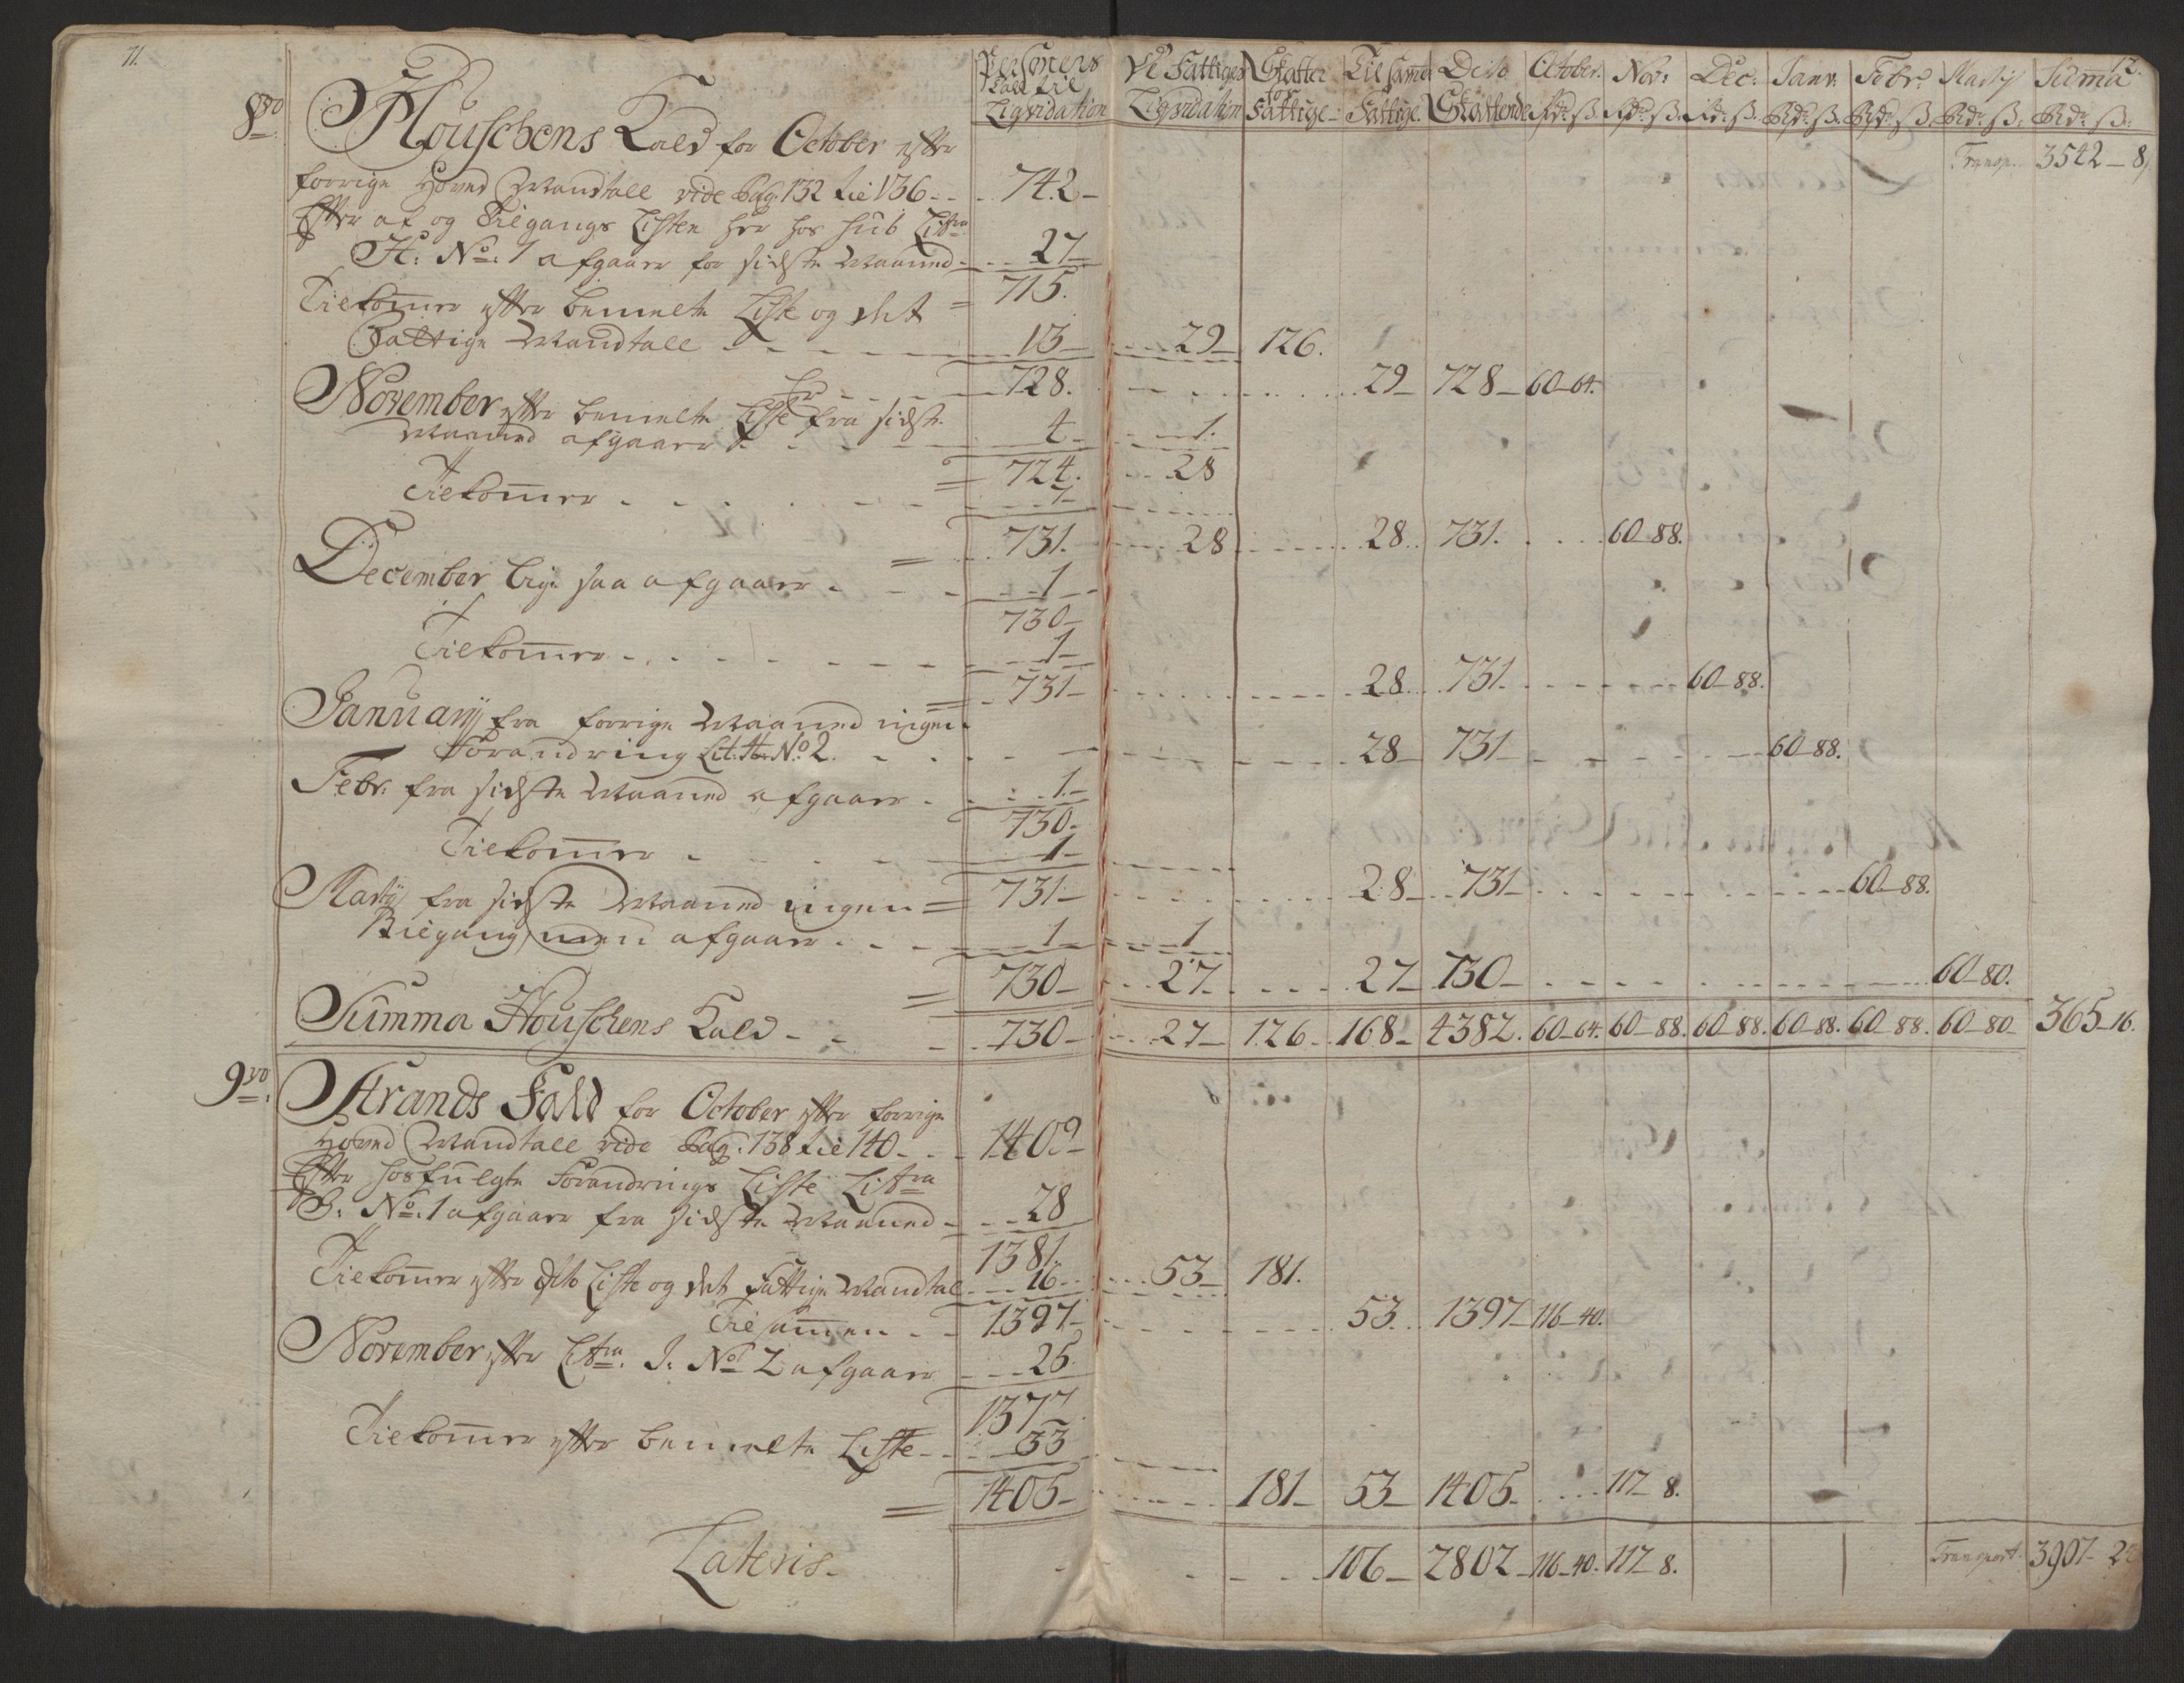 71.
12.
Persohners Tall til Liqvidation | De Fattiges Liqvidation | Skatter for Fattige | Til sammen Fattige | Dito Skattende | October. Rdr. ß. | Nov: Rdr. ß. | Dec: Rdr. ß. | Janv: Rdr. ß. | Febr: Rdr. ß. | Martij Rdr. ß. | Summa Rdr. ß:
Transp. 3542 - 8
8vo Houschens Kald for October efter
forrige Hoved Mandtall vide Pag: 132 til 136 - - 742 -
Efter af og Tilgangs Listen her hos sub Littra
H: No: 1 afgaaer for sidste Maaned - - 27 -
= 715.
Tilkommer efter bemelte Liste og det
Fattige Mandtall - - - 13 - 29 - 126.
- 728. - - - 29 - 728 - 60 - 64.
November efter bemelte Liste fra sidste
Maaned afgaaer - - 4 - 1.
= 724. - 28
Tilkommer - - - 7 -
= 731. - 28 - - 28. 731. - - 60 - 88.
December lige saa afgaaer - - - 1 -
730 -
Tilkommer - - - 1 -
= 731 - - - 28. 731. - - 60 - 88.
Januarij fra forrige Maaned ingen
Forandring Lit: H: No: 2. - - - 28 - 731 - - - 60 - 88.
Febr: fra sidste Maaned afgaaer - - 1. -
730 -
Tilkommer - - - 1 -
= 731 - - - 28 - 731 - - - 60 - 88.
Martij fra sidste Maaned ingen
Tilgang, men afgaaer - - - 1 - 1
= 730 - 27 - - 27 - 730 - - - 60 - 80.
Summa Houschens Kald - - 730 - 27 - 126 - 168 - 4382. 60 - 64. 60 - 88. 60 - 88. 60 - 88. 60 - 88. 60 - 80 - 365 - 16.
9no Strands Kald for October efter forrige
Hoved Mandtall vide Pag: 138 til 140 - - 1409 -
Efter hosfulgte Forandrings Liste Littra
J: No: 1 afgaaer fra sidste Maaned - - 28
1381.
Tilkommer efter dito Liste og det Fattige Mandtal - 16 - 53 - 181.
Tilsammen - - 1397 - - - 53. 1397 - 116 - 40.
November efter Littra J: No 2 afgaaer - 25
1372
Tilkommer efter bemelte Liste - - 33
= 1405 - - 181 - 53 - 1405 - - 117 - 8.
Lateris - - - 106 - 2802 - 116 - 40. 117 - 8. Transport. 3907 - 24